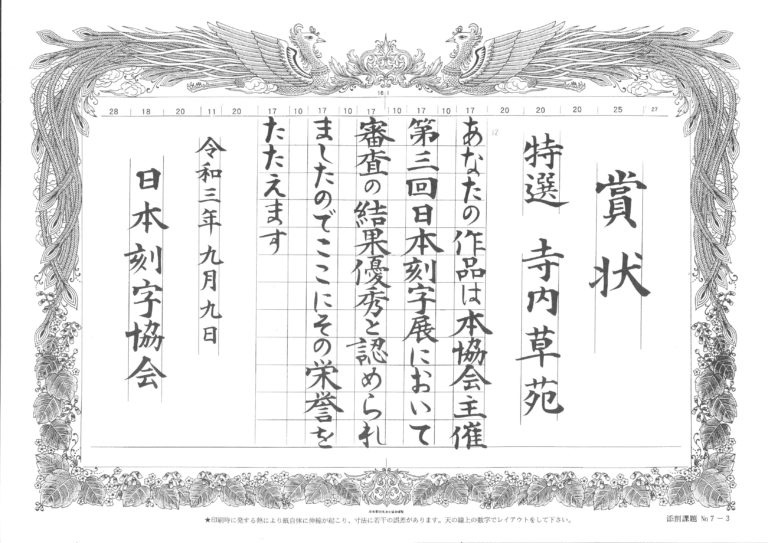 賞状
特選 寺内草苑
あなたの作品は本協会主催
第三回日本刻字展において
審査の結果優秀と認められ
ましたのでここにその栄誉を
たたえます
令和三年九月九日
日本刻字協会
16.1
28 18 20 11 20 17 10 17 10 17 10 17 10 17 20 20 20 25 27
12
★印刷時に発する熱により紙自体に伸縮が起こり、寸法に若干の誤差があります。天の線上の数字でレイアウトをして下さい。
添削課題 No.7-3